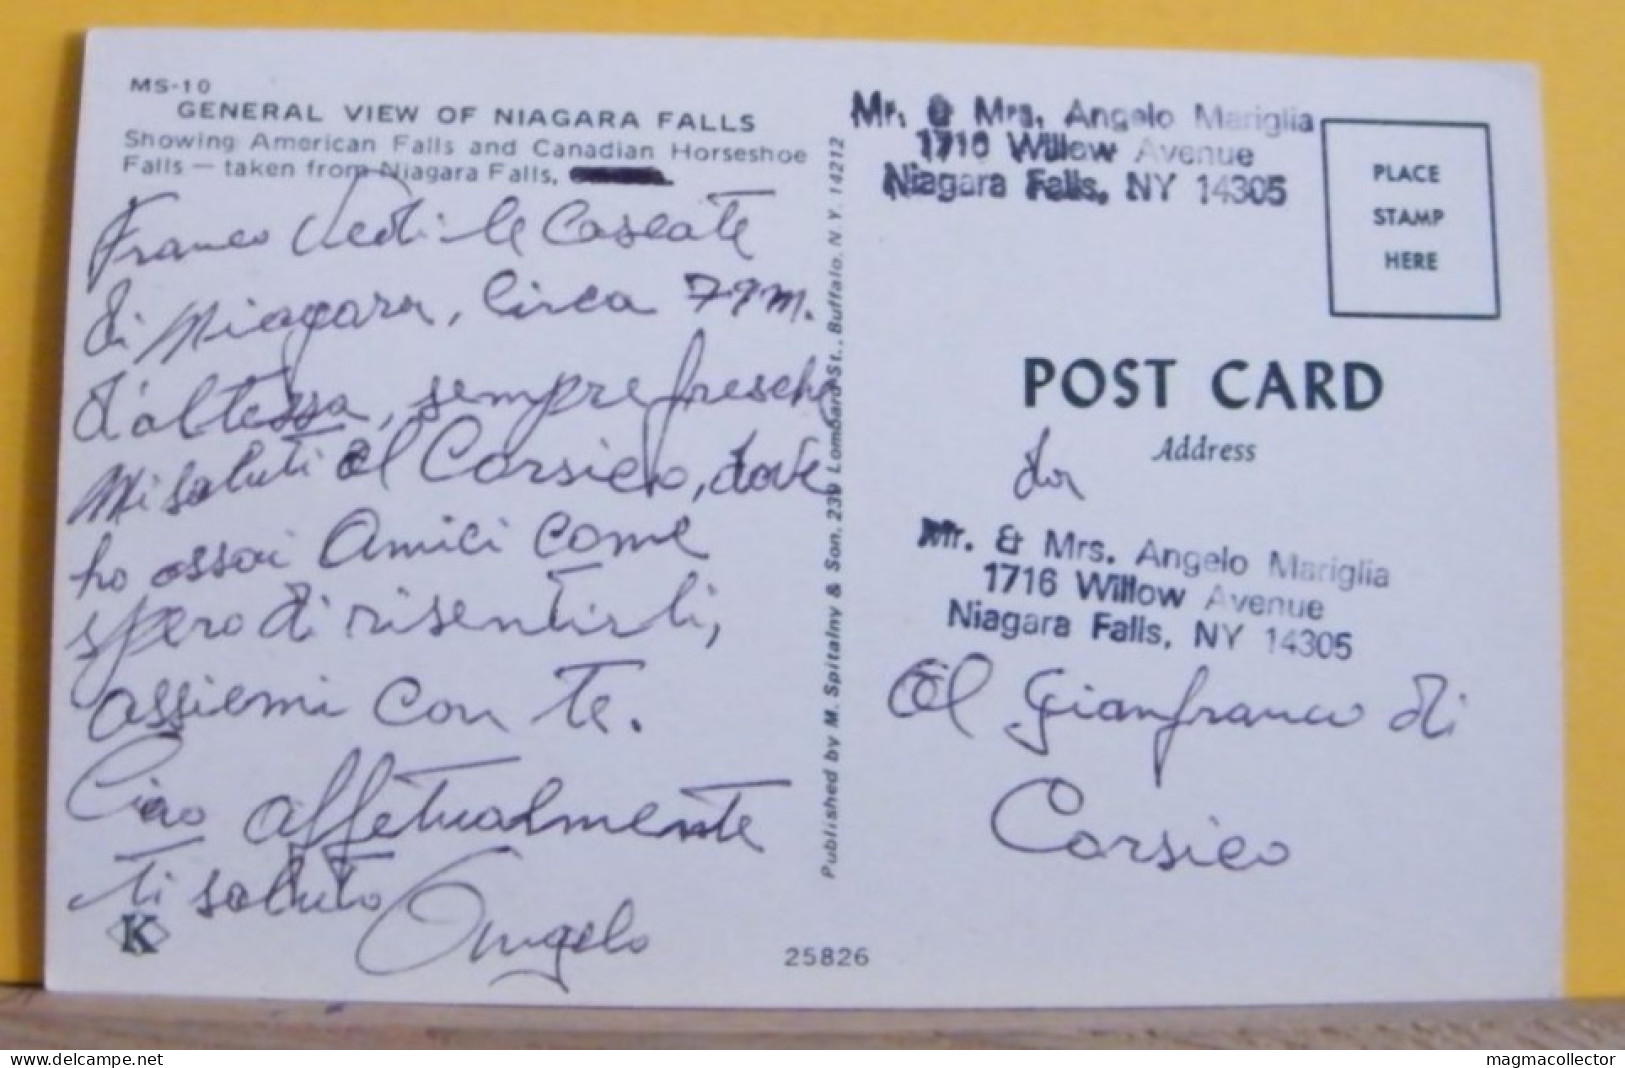 MS-10
GENERAL VIEW OF NIAGARA FALLS
Showing American Falls and Canadian Horseshoe
Falls — taken from Niagara Falls,
Franco Vedi le Cascate
di Niagara, Circa 79 m.
d'altezza, sempre fresche
Mi saluti al Corsico, dove
ho assai Amici come
spero di risentirli,
assiemi con te.
Ciao affetualmente
ti saluto Angelo
K
25826
Published by M. Spitalny & Son. 239 Lombard St., Buffalo, N.Y. 14212
Mr. & Mrs. Angelo Mariglia
1716 Willow Avenue
Niagara Falls, NY 14305
PLACE
STAMP
HERE
POST CARD
Address
da
Mr. & Mrs. Angelo Mariglia
1716 Willow Avenue
Niagara Falls, NY 14305
Al Gianfranco di
Corsico
delcampe.net
magmacollector